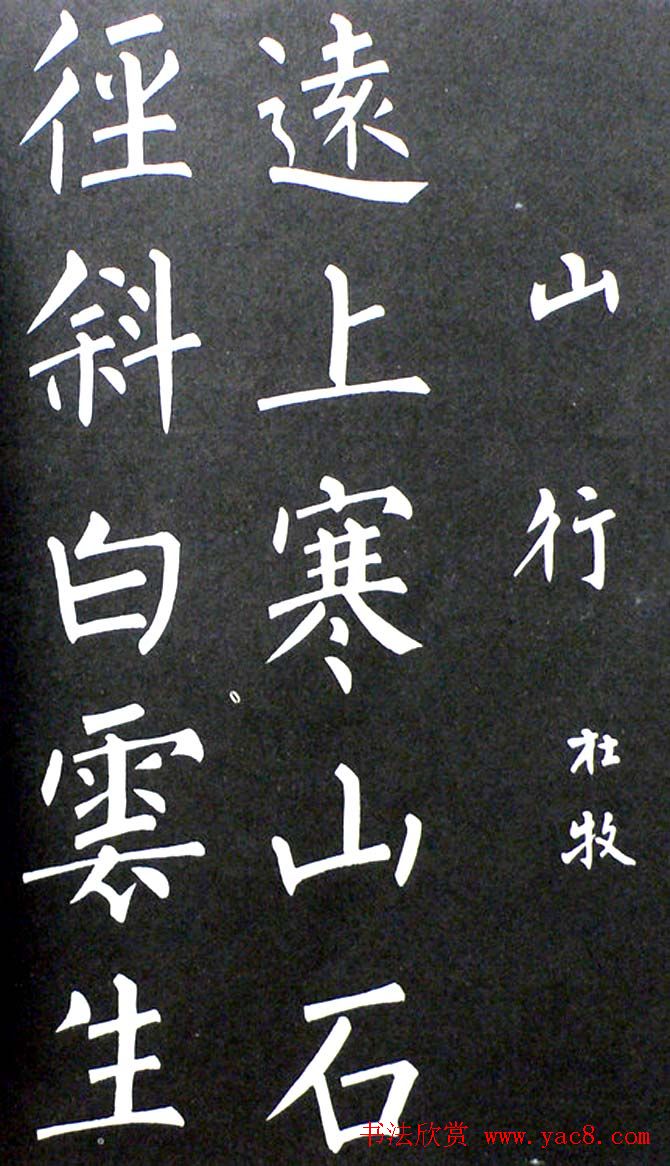 山行 杜牧
遠上寒山石
徑斜白雲生
书法欣赏 www.yac8.com